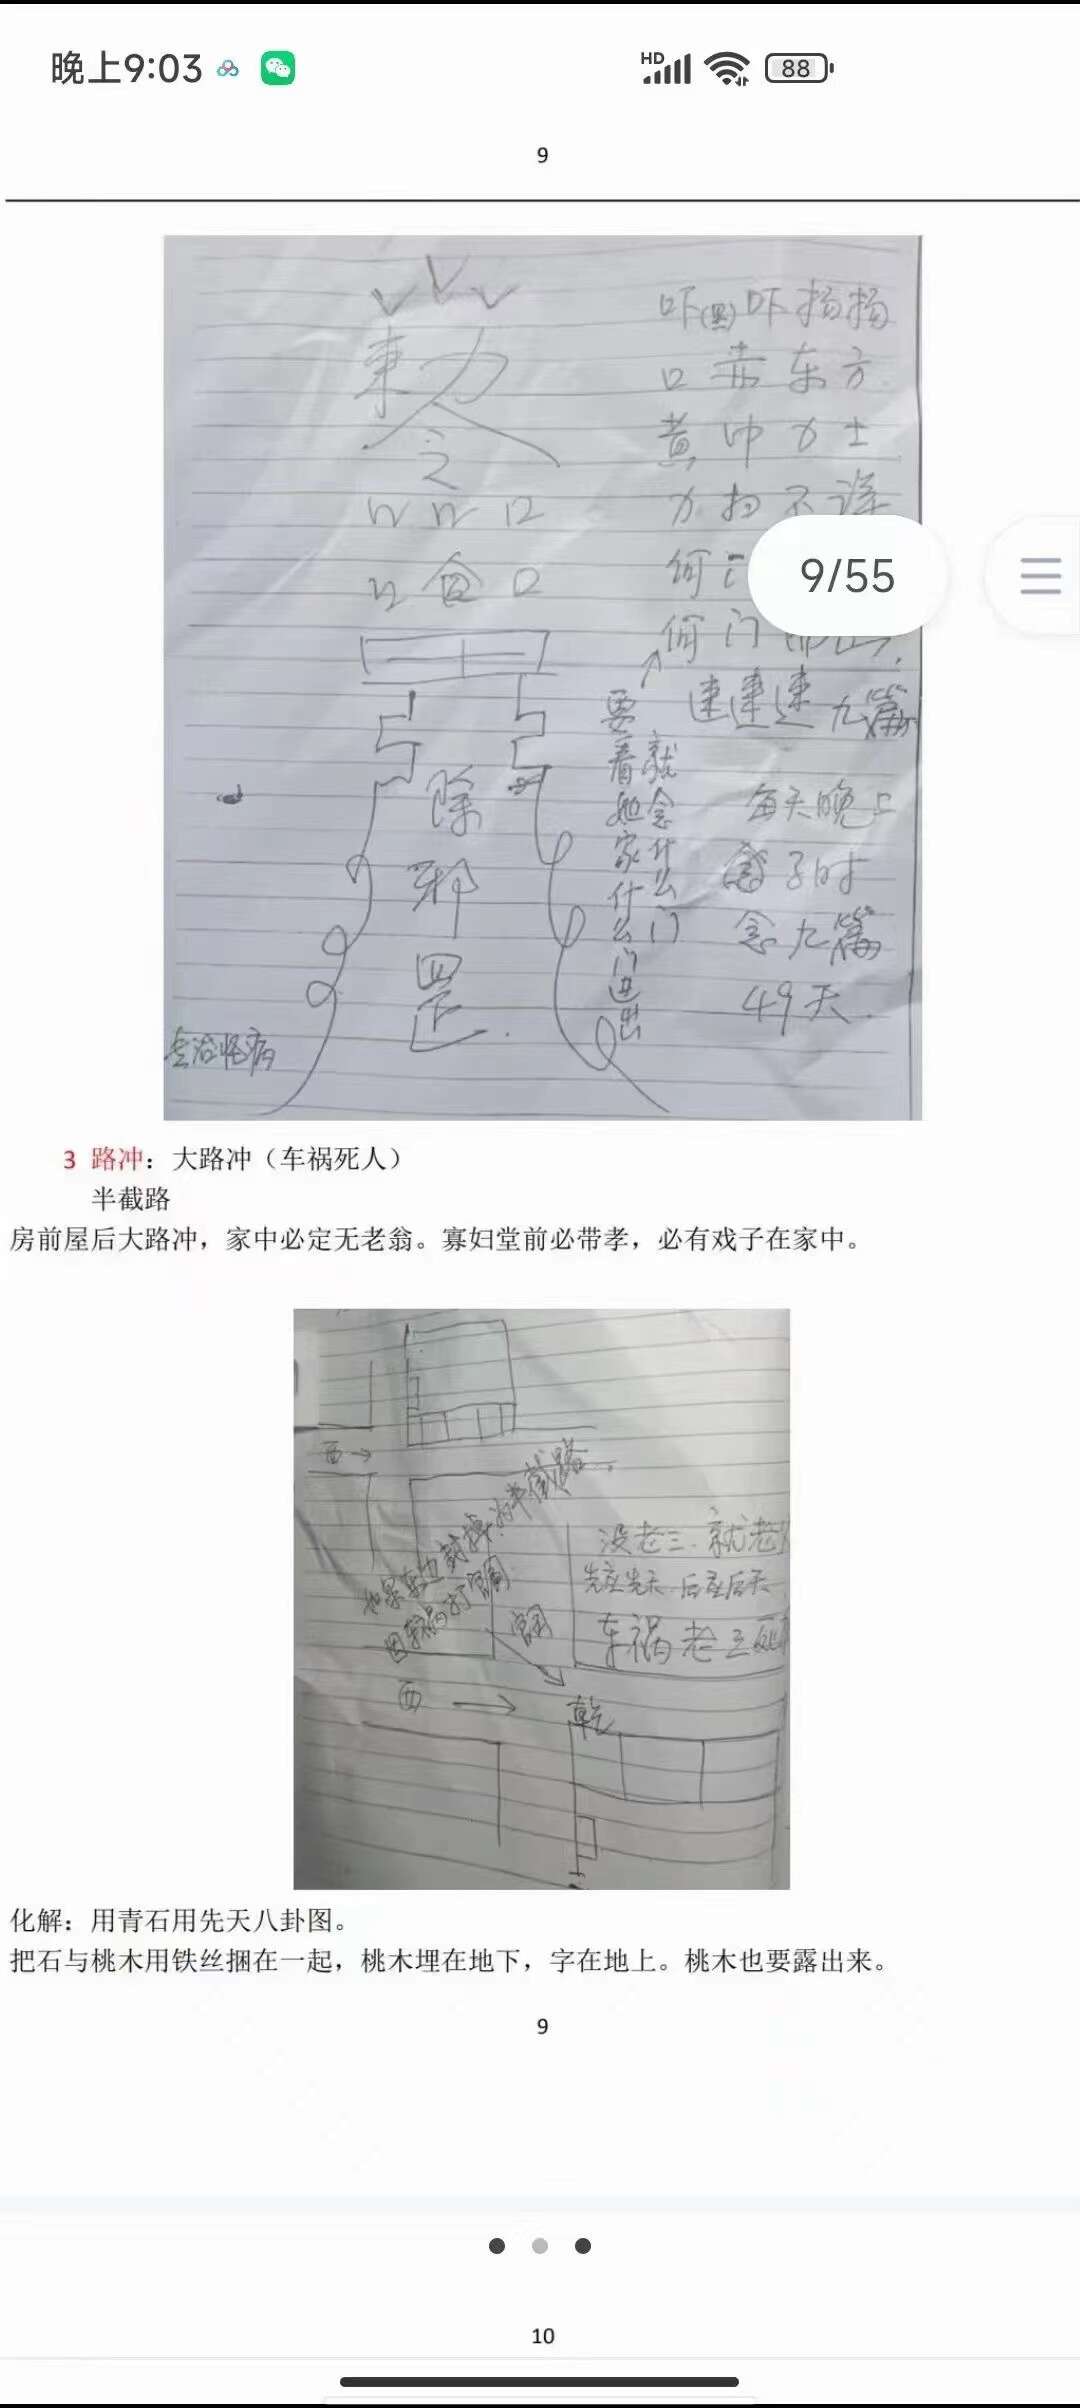 晚上9:03
HD
88
9
東力
令
之
口口口
口食口
除
邪
罡
吓(黑)吓扬扬
口赤东方
黄巾力士
力扫不详
何
何门
速速速九篇
要看她家什么门进出
就念什么门
每天晚上
子时
念九篇
49天.
专治怪病
9/55
3 路冲：大路冲（车祸死人）
半截路
房前屋后大路冲，家中必定无老翁。寡妇堂前必带孝，必有戏子在家中。
西→
半截路
没老三.就老
先应先天.后应后天
车祸老三
西
乾
化解：用青石用先天八卦图。
把石与桃木用铁丝捆在一起，桃木埋在地下，字在地上。桃木也要露出来。
9
10